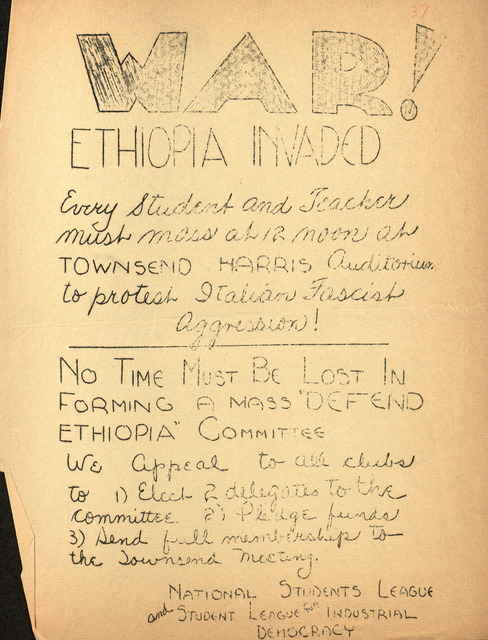 37
WAR!
ETHIOPIA INVADED
Every Student and Teacher
must mass at 12 noon at
TOWNSEND HARRIS Auditorium
to protest Italian Fascist
Aggression!
NO TIME MUST BE LOST IN
FORMING A MASS "DEFEND
ETHIOPIA" COMMITTEE
We Appeal to all clubs
to 1) Elect 2 delegates to the
committee. 2) Pledge funds
3) Send full membership to
the Townsend Meeting.
NATIONAL STUDENTS LEAGUE
and STUDENT LEAGUE for INDUSTRIAL
DEMOCRACY